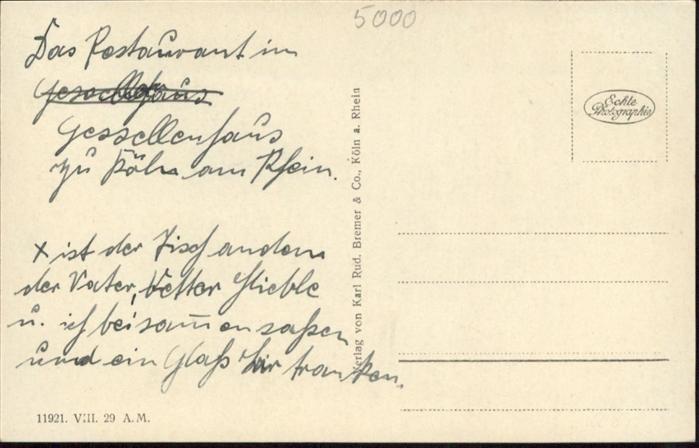 5000
Das Restaurant im
Gesellenhaus
zu Köln am Rhein.
x ist der Tisch an dem
der Vater, Vetter Stieble
u. ich beisam̄en saßen
und ein Glaß Bir tranken.
11921. VIII. 29 A.M.
Verlag von Karl Rud. Bremer & Co., Köln a. Rhein
Echte
Photographie